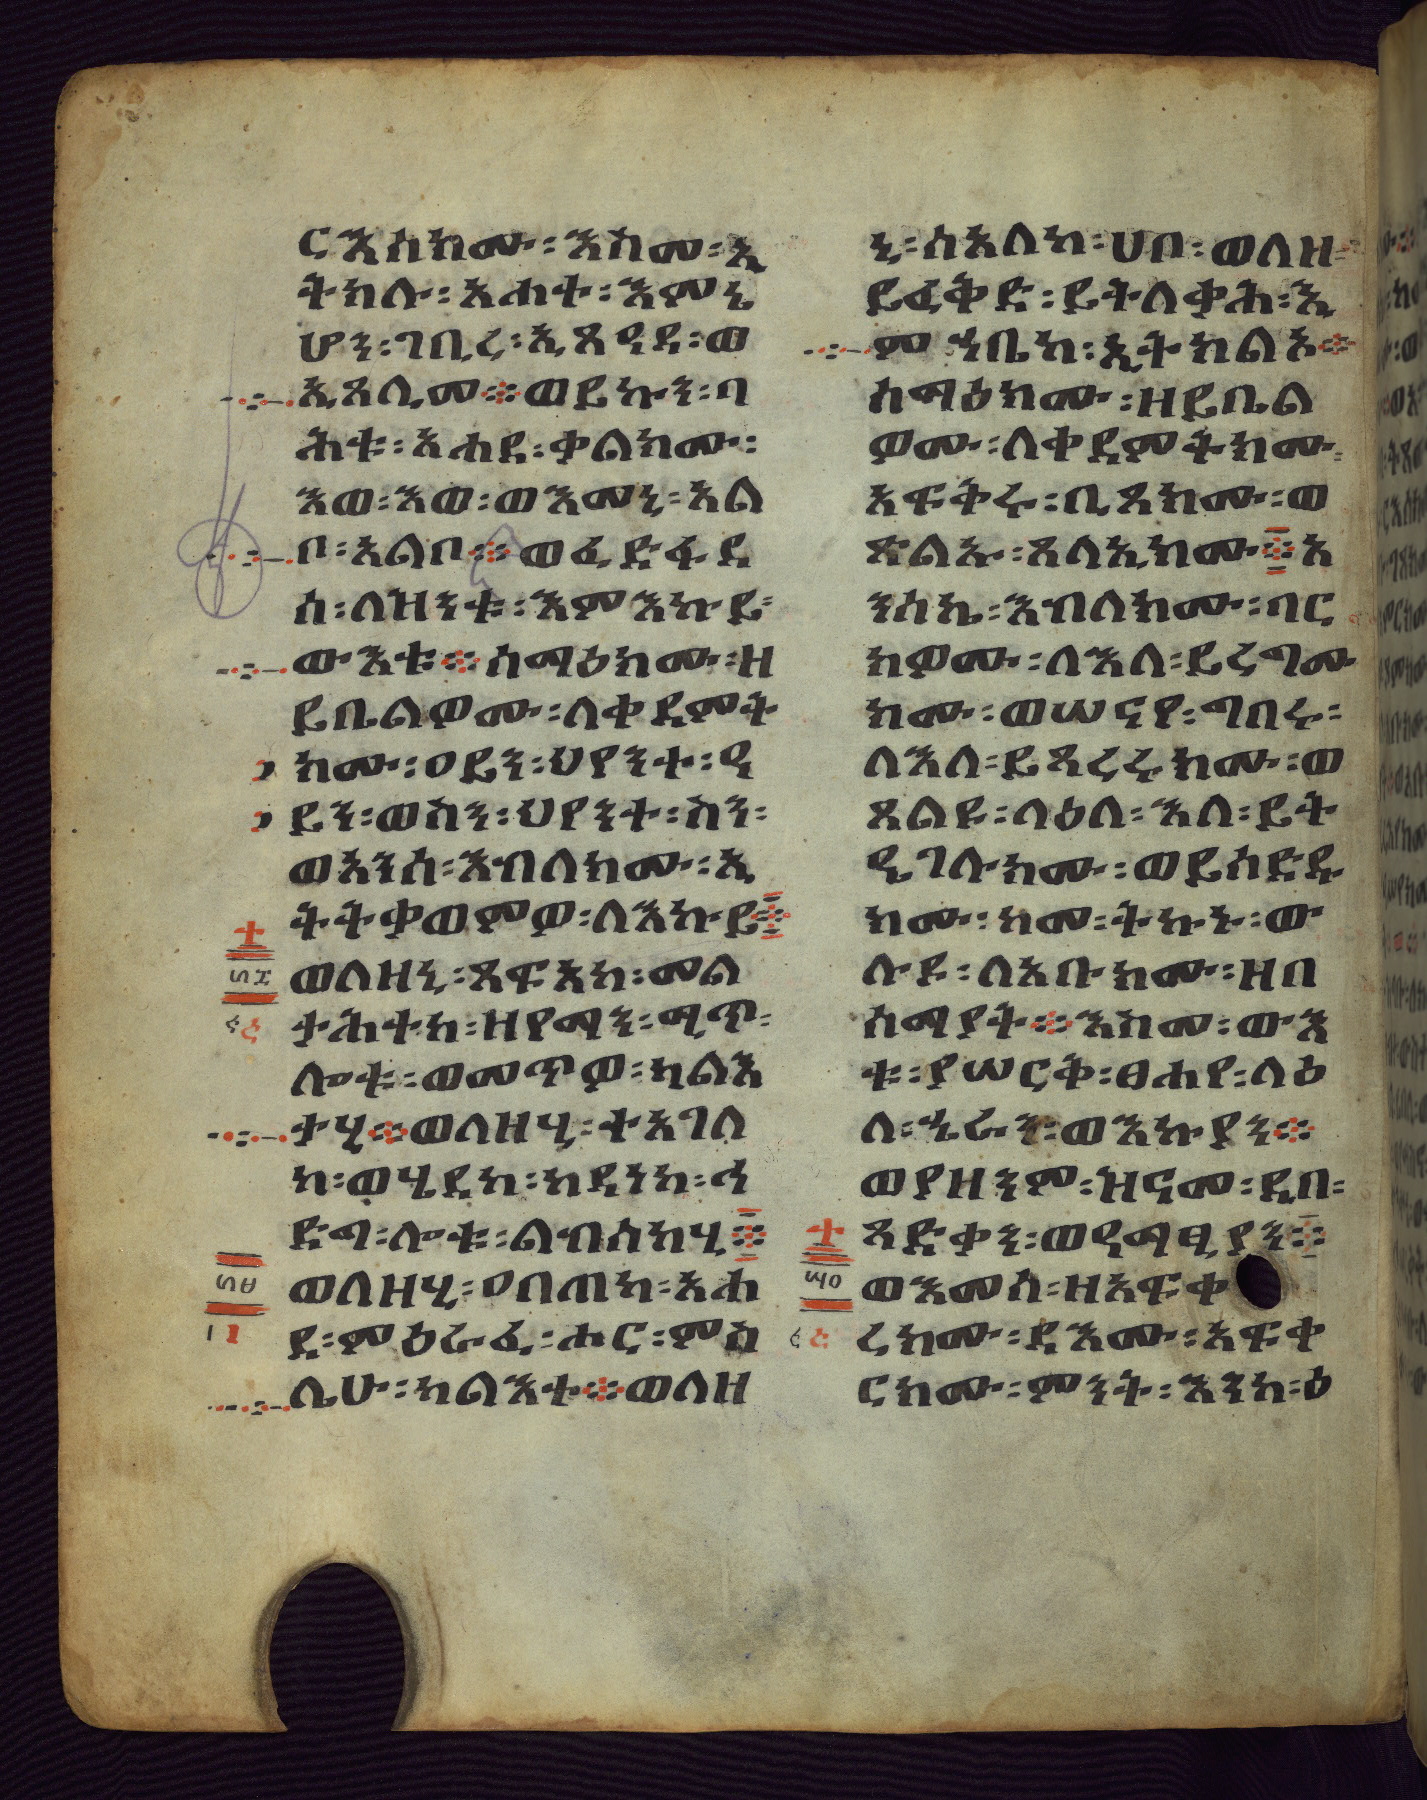 ርእስክሙ፡እስመ፡ኢ
ትክሉ፡አሐተ፡እምኒ
ሆን፡ገቢረ፡ኢጸዓደ፡ወ
ኢጸሊመ፨ወይኩን፡ባ
ሕቱ፡አሐዱ፡ቃልክሙ፡
እወ፡እወ፡ወእመኒ፡አል
ቦ፡አልቦ፨ወፈድፋደ
ሰ፡ለዝንቱ፡እምእኩይ፡
ውእቱ፨ሰማዕክሙ፡ዘ
ይቤልዎሙ፡ለቀደምት
ክሙ፡ዐይን፡ህየንተ፡ዓ
ይን፡ወስን፡ህየንተ፡ስን፡
ወአንሰ፡እብለክሙ፡ኢ
ትትቃወምዎ፡ለእኩይ፨
ወለዘኒ፡ጸፍአከ፡መል
ታሕተከ፡ዘየማን፡ሚጥ፡
ሎቱ፡ወመጥዎ፡ካልእ
ታሂ፨ወለዘሂ፡ተአገለ
ከ፡ወሂደከ፡ክዳነከ፡ኀ
ድግ፡ሎቱ፡ልብሰከሂ፨
ወለዘሂ፡ዐበጠከ፡አሐ
ደ፡ምዕራፈ፡ሑር፡ምስ
ሌሁ፡ካልእተ፨ወለዘ
ኒ፡ሰአለከ፡ሀቦ፡ወለዘ፡
ይፈቅድ፡ይትለቃሕ፡እ
ም ኀቤከ፡ኢትክልእ፨
ሰማዕክሙ፡ዘይቤል
ዎሙ፡ለቀደምትክሙ፡
አፍቅሩ፡ቢጸክሙ፡ወ
ጽልኡ፡ጸላኢክሙ፨አ
ንሰኬ፡እብለክሙ፡ባር
ክዎሙ፡ለእለ፡ይረግሙ
ክሙ፡ወሠናየ፡ግበሩ፡
ለእለ፡ይጻረሩክሙ፡ወ
ጸልዩ፡ላዕለ፡እለ፡ይት
ዔገሉክሙ፡ወይሰድዱ
ክሙ፡ከመ፡ትኩኑ፡ው
ሉደ፡ለአቡክሙ፡ዘበ
ሰማያት፨እስመ፡ውእ
ቱ፡ያሠርቅ፡ፀሐየ፡ላዕ
ለ፡ኄራን፡ወእኩያን፨
ወያዘንም፡ዝናመ፡ዲበ፡
ጻድቃን፡ወዓማፂያን፨
ወእመሰ፡ዘአፍቀ
ረክሙ፡ዳእሙ፡አፍቀ
ርክሙ፡ምንት፡እንከ፡ዕ